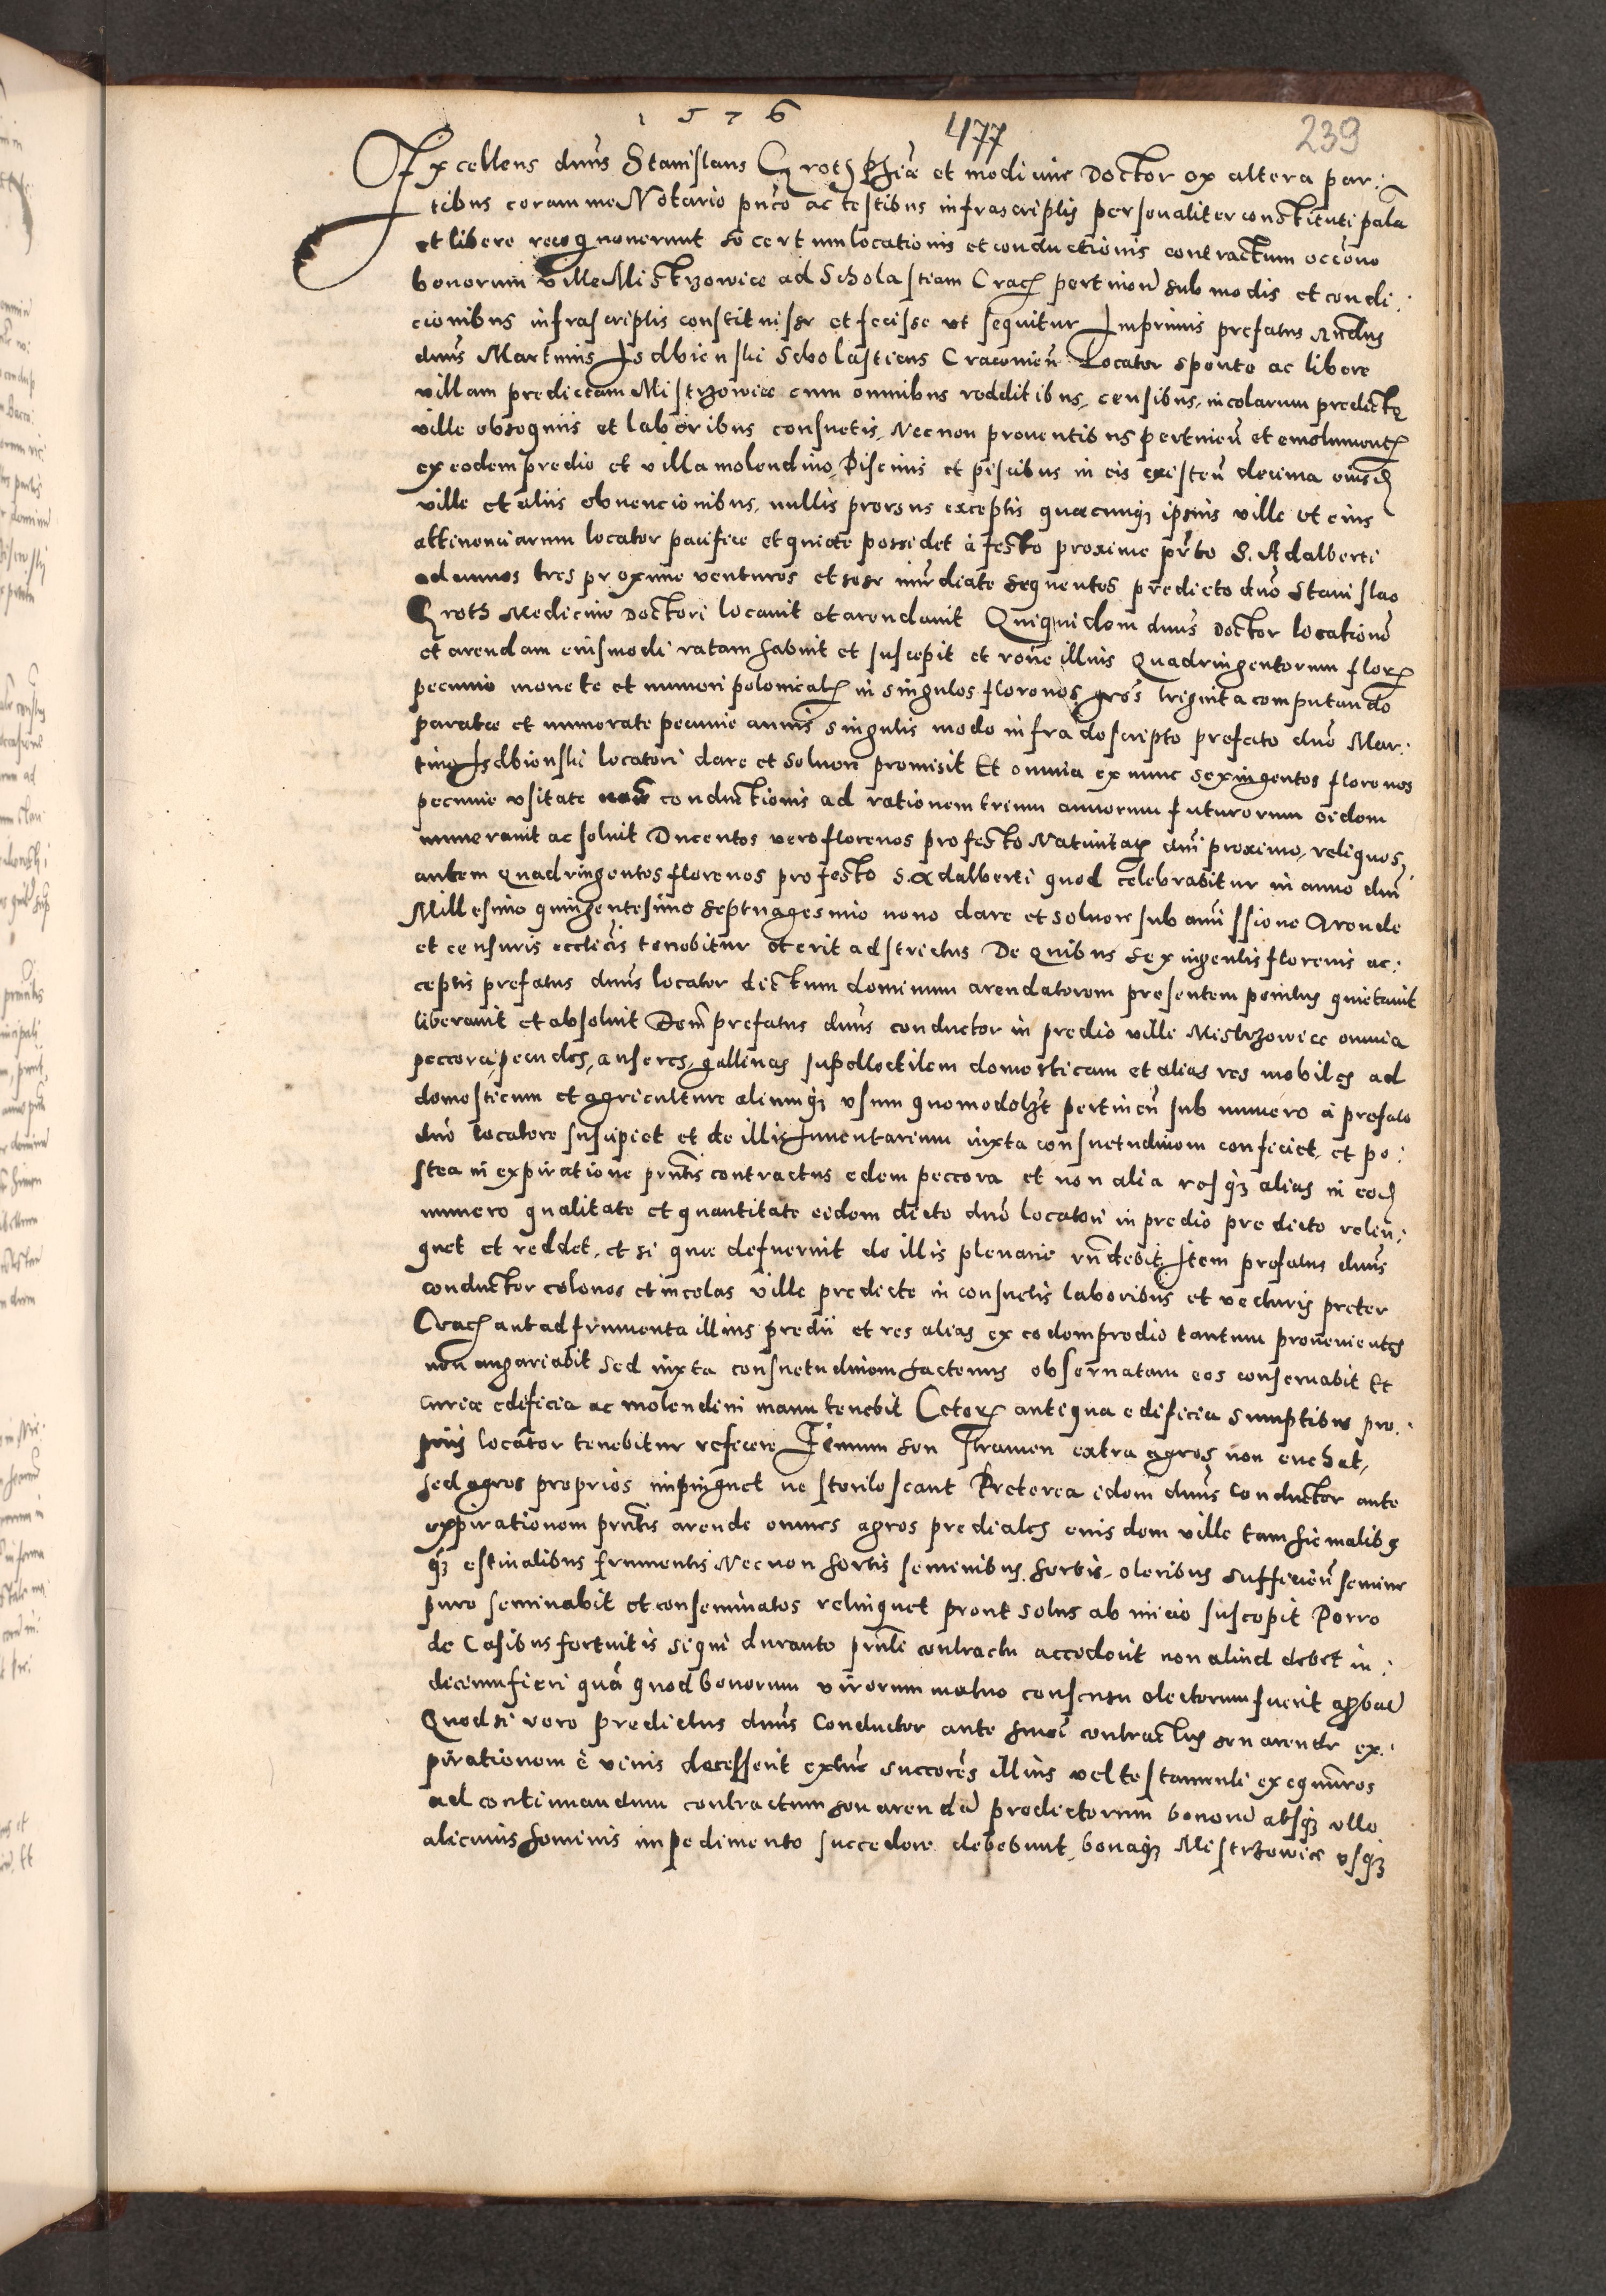 1576
477
239
Excellens dnūs Stanislaus Groth Phiæ et medicinæ Doctor ex altera par:
tibus coram me Notario pnco ac testibus infrascriptis personaliter constituti palā
et libere recognoverunt se certum locationis et conductionis contractum occōne
bonorum ville Mistrzowice ad Scholastriam Crac pertinen sub modis et condi:
cionibus infrascriptis constituisse et fecisse ut sequitur Imprimis prefatus Rndus
dnūs Martinus Isdbienski Scholasticus Cracovien Locator sponte ac libere
villam predictam Mistrzowice cum omnibus redditibus, censibus, incolarum predictę
ville obsequiis et laboribus consuetis, Necnon proventibus pertinen et emolument
ex eodem predio et villa molendino, Piscinis et piscibus in eis existen decima eiusd
ville et aliis obvencionibus, nullis prorsus exceptis quæcunq ipsius ville et eius
attinenciarum locator pacifice et quiete possidet à festo proxime prto S. Adalberti
ad annos tres proxime venturos et sese immediate sequentes predicto dno Stanislao
Groth Medicine Doctori locavit et arendavit Quiquidem dnūs Doctor locationē
et arendam eiusmodi ratam habuit et suscepit et rone illius Quadringentorum flor
pecunie monete et numeri polonical in singulos florenos gros triginta computando
paratæ et numerate pecunie annis singulis modo infradescripto prefato dno Mar:
tino Isdbienski locatori dare et solvere promisit Et omnia ex nunc sexingentos florenos
pecunie usitate conductionis ad rationem trium annorum futurorum eidem
numeravit ac solvit Ducentos vero florenos pro festo Nativitat dni proximo, reliquos
autem Quadringentos florenos pro festo S. Adalberti quod celebrabitur in anno dni
Millesimo quingentesimo septuagesimo nono dare et solvere sub amissione Arende
et censuris ecclicis tenebitur et erit adstrictus De quibus sexingentis florenis ac:
ceptis prefatus dnūs locator dictum dominum arendatorem presentem penitus quietavit
liberavit et absolvit Dem prefatus dnūs conductor in predio ville Mistrzowice omnia
peccora, pecudes, anseres, gallinas supellectilem domesticam et alias res mobiles ad
domesticum et agriculture aliumq usum quomodolzt pertinen sub numero à prefato
dno locatore suscipiet et de illis Inventarium iuxta consuetudinem conficiet, et po:
stea in expiratione pntis contractus edem peccora et non alia resq alias in eod
numero qualitate et quantitate eidem dicto dno locatori in predio predicto relin:
quet et reddet, et si que defuerint de illis plenarie rndebit Item prefatus dnūs
conductor colonos et incolas ville predicte in consuetis laboribus et vecturis preter
Crac aut ad frumenta illius predii et res alias ex eodem predio tantum provenientes
non angariabit sed iuxta consuetudinem hactenus observatam eos conservabit Et
curiæ edificia ac molendini manutenebit Ceter antiqua edificia sumptibus pro:
priis locator tenebitur reficere Fimum seu Stramen extra agros non evehat,
sed agros proprios impinguet ne sterilescant Preterea idem dnūs Conductor ante
expirationem pntis arende omnes agros prediales eiusdem ville tam hiemalibs
q estivalibus frumentis Necnon hortis seminibus herbis, oleribus sufficien semine
puro seminabit et conseminatos relinquet prout solus ab inicio suscepit Porro
de Casibus fortuitis siqui durante pnti contractu accederit non aliud debet in:
dicium fieri quā quod bonorum virorum mutuo consensu electorum fuerit approbat
Quod si vero predictus dnūs Conductor ante hmoi contractus seu arende ex:
pirationem è vivis decesserit extunc succores illius vel testamenti exequutores
ad continuandum contractum seu arendā predictorum bonorū absq ullo
alicuius hominis impedimento succedere debebunt, bonaq Mistrzowice usq